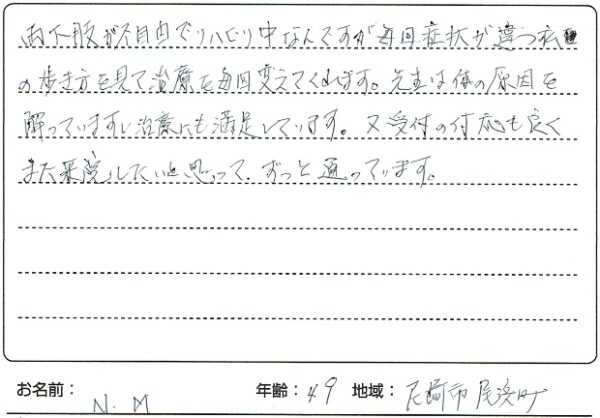 両下股が不自由でリハビリ中なんですが毎回症状が違う私
の歩き方を見て治療を毎回変えてくれます。先生は体の原因を
解っていますし治療にも満足しています。又受付の対応も良く
また来院したいと思って、ずっと通っています。
お名前： N.M 年齢：49 地域：尼崎市尾浜町